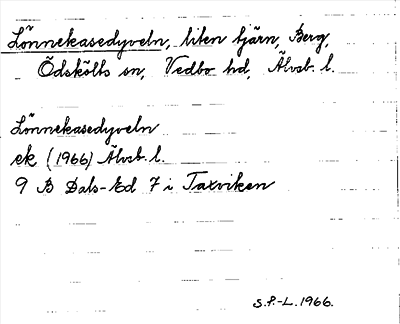 Lönnekasedyveln, liten tjärn, Berg,
Ödskölts sn, Vedbo hd, Älvsb. l.
Lönnekasedyveln
ek (1966) Älvsb. l.
9 B Dals-Ed 7 i Taxviken
S.P.-L. 1966.